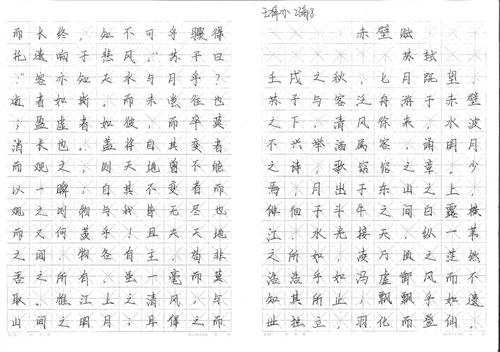 赤壁赋
苏轼
壬戌之秋，七月既望，
苏子与客泛舟游于赤壁
之下。清风徐来，水波
不兴举酒属客，诵明月
之诗，歌窈窕之章。少
焉，月出于东山之上，
徘徊于斗牛之间白露横
江，水光接天。纵一苇
之所如，凌万顷之茫然
浩浩乎如冯虚御风而不
知其所止；飘飘乎如遗
世独立，羽化而登仙。
而长终，知不可乎骤得
托遗响于悲风。"苏子曰
："客亦知夫水与月乎？
逝者如斯，而未尝往也
；盈虚者如彼，而卒莫
消长也。盖将自其变者
而观之，则天地曾不能
以一瞬；自其不变者而
观之则物与我皆无尽也
而又何羡乎！且夫天地
之间，物各有主，苟非
吾之所有，虽一毫而莫
取。惟江上之清风，与
山间之明月；耳得之而